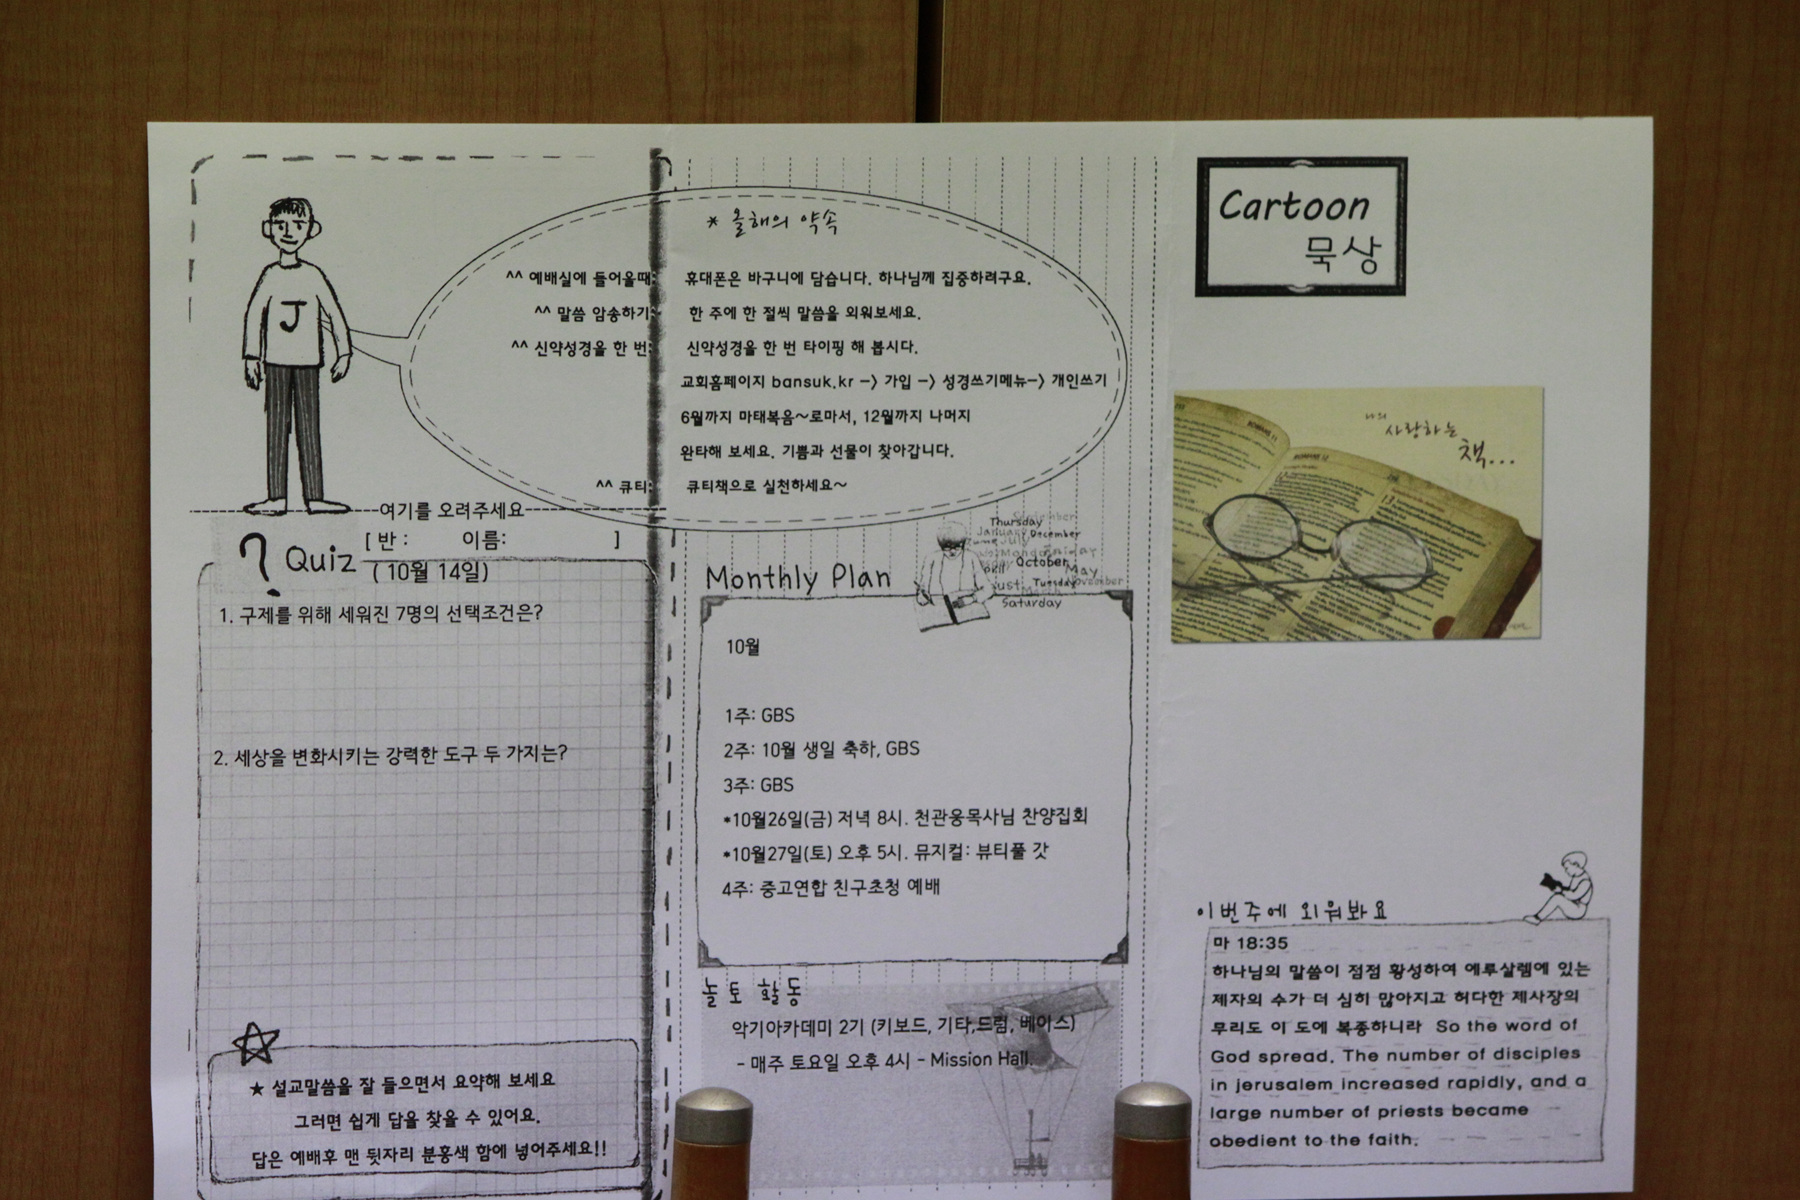 * 올해의 약속
^^ 예배실에 들어올때: 휴대폰은 바구니에 담습니다. 하나님께 집중하려구요.
^^ 말씀 암송하기: 한 주에 한 절씩 말씀을 외워보세요.
^^ 신약성경을 한 번: 신약성경을 한 번 타이핑 해 봅시다.
교회홈페이지 bansuk.kr -> 가입 -> 성경쓰기메뉴-> 개인쓰기
6월까지 마태복음~로마서, 12월까지 나머지
완타해 보세요. 기쁨과 선물이 찾아갑니다.
^^ 큐티: 큐티책으로 실천하세요~
J
여기를 오려주세요
[ 반 : 이름: ]
? Quiz ( 10월 14일)
1. 구제를 위해 세워진 7명의 선택조건은?
2. 세상을 변화시키는 강력한 도구 두 가지는?
★ 설교말씀을 잘 들으면서 요약해 보세요
그러면 쉽게 답을 찾을 수 있어요.
답은 예배후 맨 뒷자리 분홍색 함에 넣어주세요!!
Monthly Plan
September
Thursday
January December
July
October
May
Tuesday November
Saturday
10월
1주: GBS
2주: 10월 생일 축하, GBS
3주: GBS
*10월26일(금) 저녁 8시. 천관웅목사님 찬양집회
*10월27일(토) 오후 5시. 뮤지컬: 뷰티풀 갓
4주: 중고연합 친구초청 예배
놀토 활동
악기아카데미 2기 (키보드, 기타,드럼, 베이스)
- 매주 토요일 오후 4시 - Mission Hall.
Cartoon
묵상
나의
사랑하는
책...
ROMANS 11
ROMANS 12
이번주에 외워봐요
마 18:35
하나님의 말씀이 점점 황성하여 에루살렘에 있는
제자의 수가 더 심히 많아지고 허다한 제사장의
무리도 이 도에 복종하니라 So the word of
God spread. The number of disciples
in jerusalem increased rapidly, and a
large number of priests became
obedient to the faith.